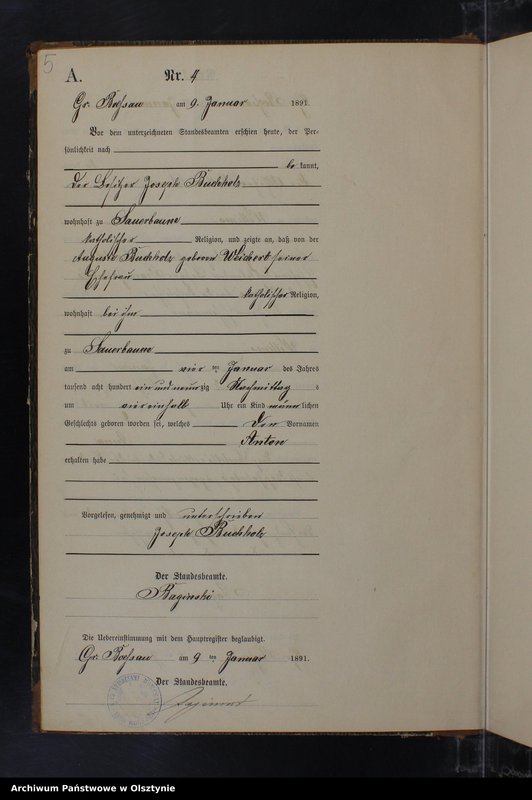 5
A.
Nr. 4
Gr. Bössau am 9. Januar 1891.
Vor dem unterzeichneten Standesbeamten erschien heute, der Per-
sönlichkeit nach
be kannt,
der Besitzer Joseph Buchholz
wohnhaft zu Sauerbaum
katholischer Religion, und zeigte an, daß von der
Auguste Buchholz geboren Weichert seiner
Ehefrau
katholischer Religion,
wohnhaft bei ihm
zu Sauerbaum
am vier ten Januar des Jahres
tausend acht hundert ein und neunzig Nachmittag s
um vier einhalb Uhr ein Kind männlichen
Geschlechts geboren worden sei, welches den Vornamen
Anton
erhalten habe
Vorgelesen, genehmigt und unterschrieben
Joseph Buchholz
Der Standesbeamte.
Baginski
Die Uebereinstimmung mit dem Hauptregister beglaubigt.
Gr. Bössau am 9 ten Januar 1891.
Der Standesbeamte.
Archiwum Państwowe w Olsztynie